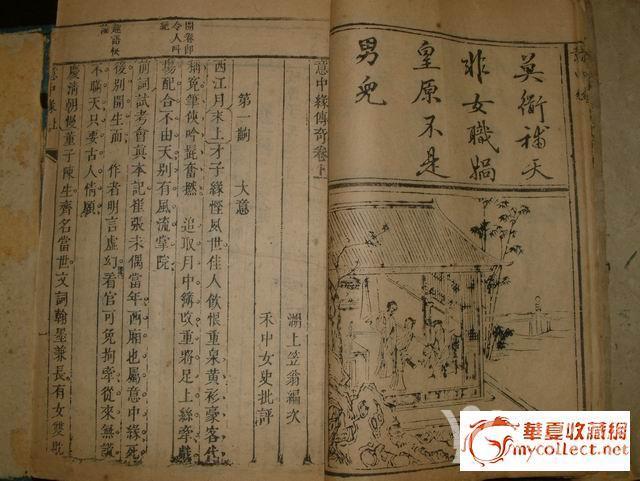 莫衒補天
非女職媧
皇原不是
男兒
意中緣傳奇卷上
湖上笠翁編次
禾中女史批評
第一齣　大意
西江月末上才子緣慳夙世佳人飲恨重泉黃衫豪客代
稱冤筆俠吟髭奮撚　追取月中簿改重將足上絲牽戲
場配合不由天別有風流掌院
前詞試考會真本記崔張未偶當年西廂也屬意中緣死
後別開生面　作者明言虛幻看官可免拘牽從來無謊
不瞞天只要古人情願
慶清朝慢董子陳生齊名當世文詞翰墨兼長有女雙
開卷即
令人叫
意中緣上
華夏收藏網
mycollect.net